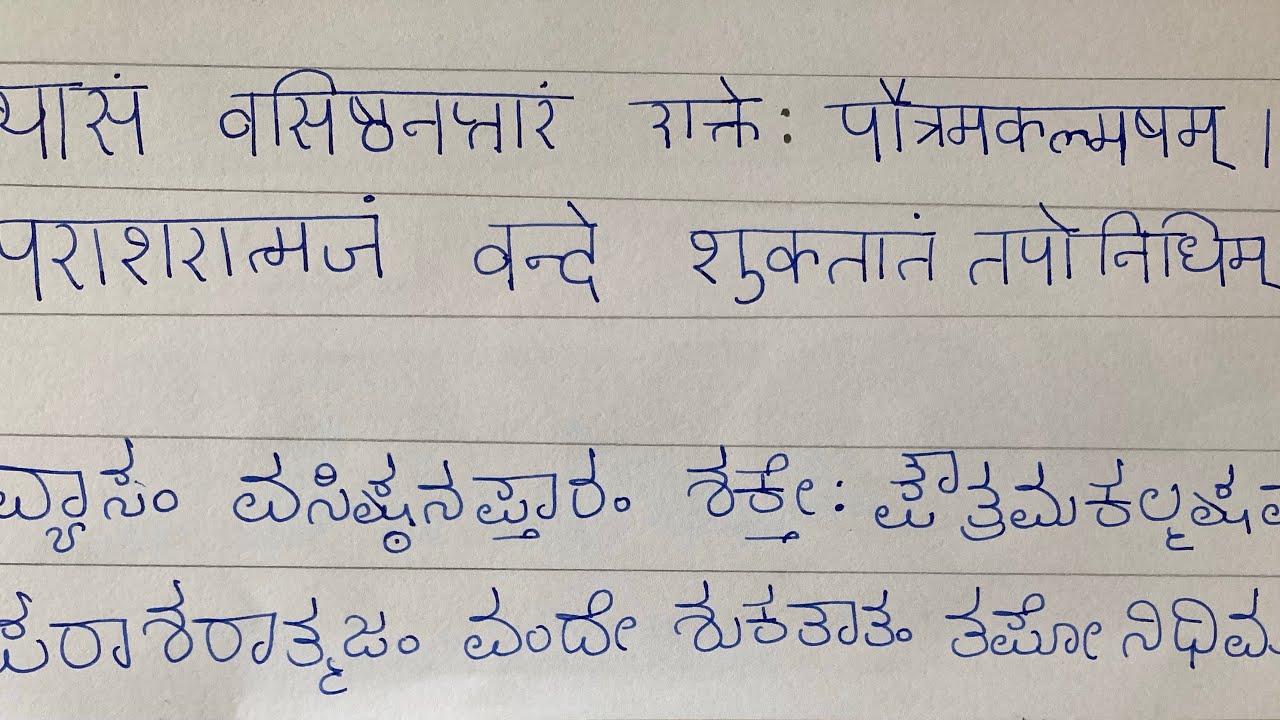 यासं वसिष्ठनप्तारं शक्तेः पौत्रमकल्मषम् ।
पराशरात्मजं वन्दे शुकतातं तपोनिधिम्
ವ್ಯಾಸಂ ವಸಿಷ್ಠನಪ್ತಾರಂ ಶಕ್ತೇಃ ಪೌತ್ರಮಕಲ್ಮಷಮ
ಪರಾಶರಾತ್ಮಜಂ ವಂದೇ ಶುಕತಾತಂ ತಪೋನಿಧಿಮ